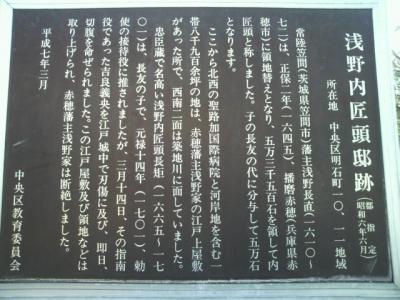 浅野内匠頭邸跡
都指定
昭和六年六月
所在地 中央区明石町一〇、一一地域
常陸笠間(茨城県笠間市)藩主浅野長直(一六一〇〜
七二)は、正保二年(一六四五)、播磨赤穂(兵庫県赤
穂市)に領地替えとなり、五万三千五百石を領して内
匠頭と称しました。子の長友の代に分与して五万石
となります。
ここから北西の聖路加国際病院と河岸地を含む一
帯八千九百余坪の地は、赤穂藩主浅野家の江戸上屋敷
があった所で、西南二面は築地川に面していました。
忠臣蔵で名高い浅野内匠頭長矩(一六六五〜一七
〇一)は、長友の子で、元禄十四年(一七〇一)、勅
使の接待役に推されましたが、三月十四日、その指南
役であった吉良義央を江戸城中で刃傷に及び、即日、
切腹を命ぜられました。この江戸屋敷及び領地などは
取り上げられ、赤穂藩主浅野家は断絶しました。
平成七年三月
中央区教育委員会